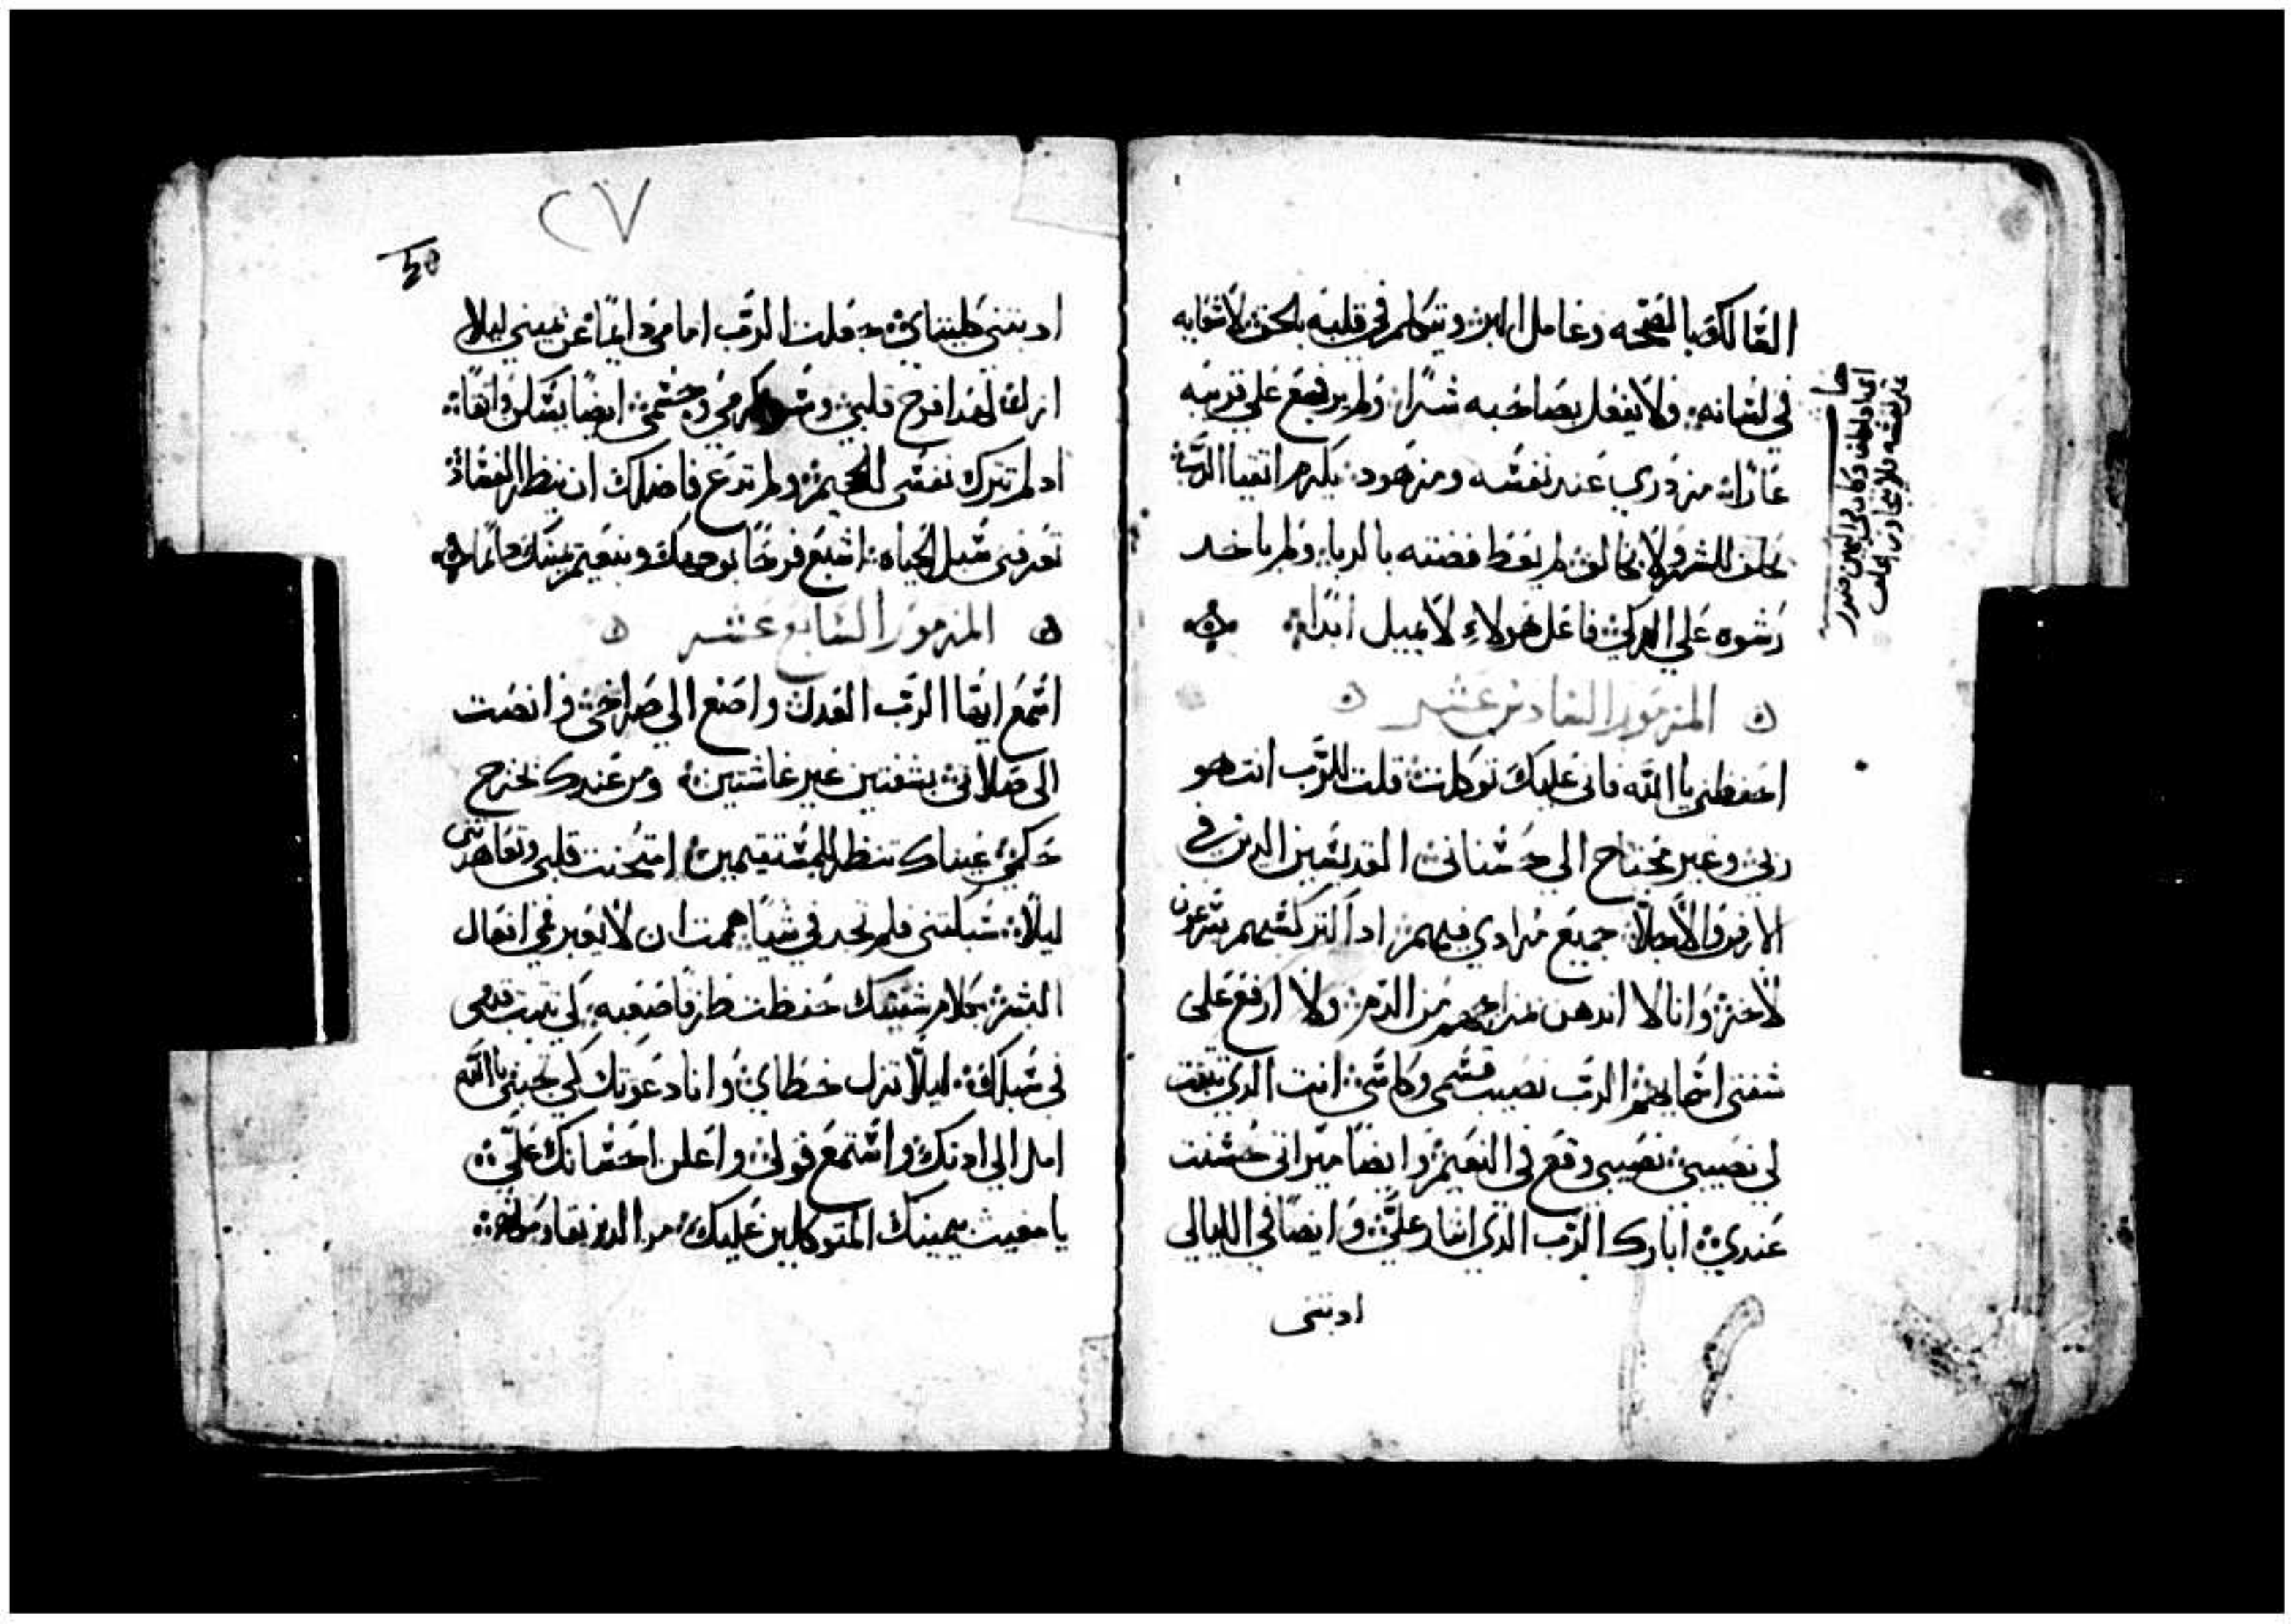 السالك بالصحه وعامل البر ويتكلم في قلبه بالحق لا شقايه
في لسانه ولا يفعل بصاحبه شرا ولم يرفع على قريبه
عارا مزدري عند نفسه ومزهود يكرم اتقيا الرب
يحلف للشر ولا يخالف لم يعط فضته بالربا ولم ياخد
رشوه على البركي فاعل هولاء لا يميل ابدا
المزمور السادس عشر
احفظني يا الله فاني عليك توكلت قلت للرب انت هو
ربي وغير محتاج الي حسناتي القديسين الدين في
الارض الاجلا جميع مرادي فيهم ادا الدركسهم يسرعون
لاخر وانا لا اندهن مزاجهم من الدم ولا ارفع على
شفتي اسماهم الرب نصيب قسمي وكاسي انت الدي تبت
لي نصيبي نصيبي وقع في النعيم وايضا ميراتي حسنت
عندي ابارك الرب الدي اشار علي وايضا في الليالي
ادبتني
٢٧
ادبتني كليتاي جعلت الرب امامي دايما عن يميني ليلا
ازلف لهدا فرح قلبي وشر كرمي وجسمي ايضا يسكن واتقا
اد لم تترك نفسي للجحيم ولم تدع فاضلك ان ينظر الفساد
تعرفني سبل الحياه اشبع فرحا بوجهك وبنعيم يمينك دايما
المزمور السابع عشر
اسمع ايها الرب العدل واصغ الي صراخي وانصت
الى صلاتي بشفتين غير غاشتين ومن عندك تخرج
حكمي عيناك تنظر للمستقيمين امتحنت قلبي وتعاهدتني
ليلا سبكتني فلم تجد في شيا هممت ان لا يعبر فمي افعال
البشر بكلام شفتيك حفظت طرقا صعبه كي تتبت قدمي
في سبلك ليلا تزل خطاي وانا دعوتك كي تجبني يا الله
امل الي ادنك واستمع قولي واعلن احسانك علي
يا مغيث بيمينك المتوكلين عليك من الدين يقاومونهم